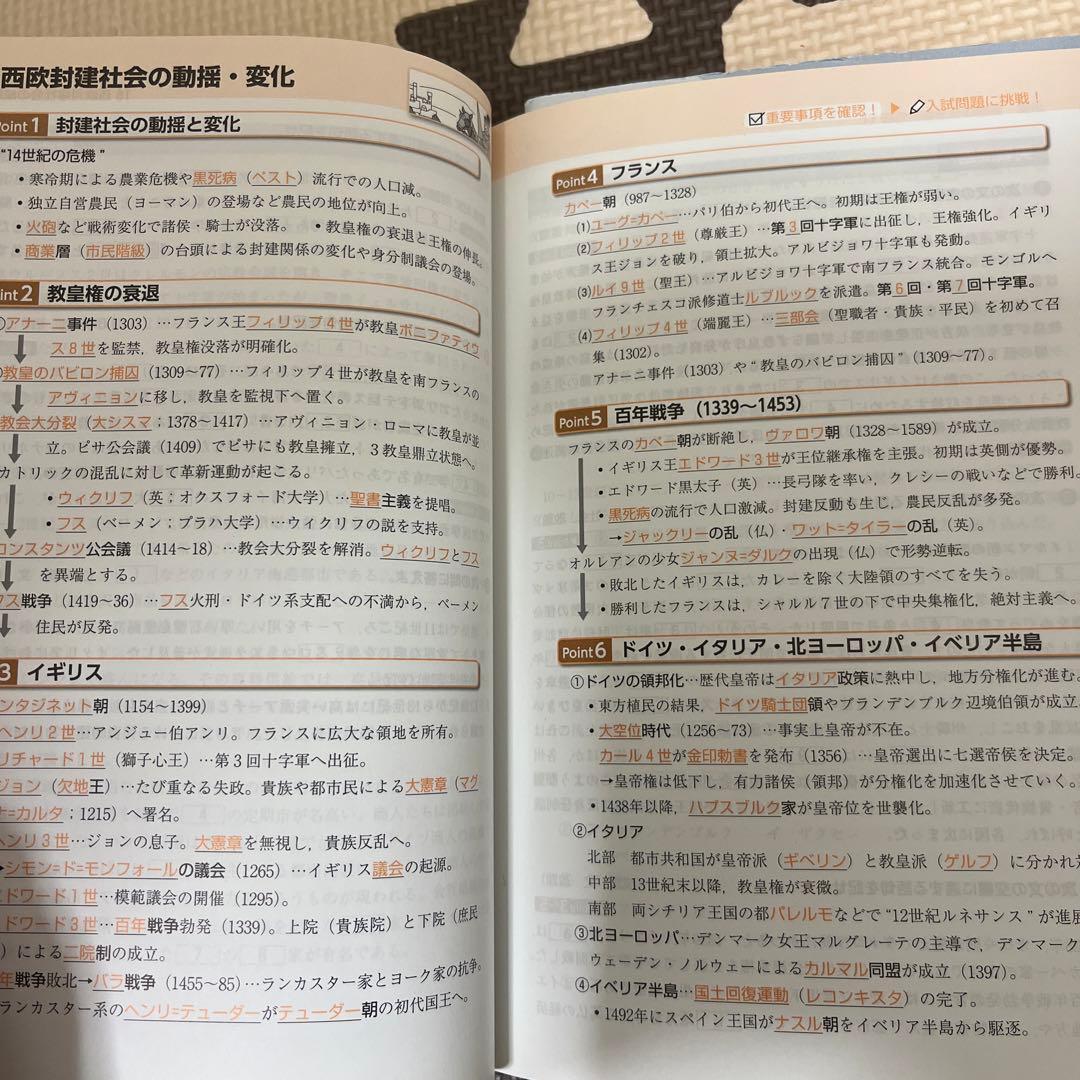 西欧封建社会の動揺・変化
Point 1 封建社会の動揺と変化
“14世紀の危機”
・寒冷期による農業危機や黒死病（ペスト）流行での人口減。
・独立自営農民（ヨーマン）の登場など農民の地位が向上。
・火砲など戦術変化で諸侯・騎士が没落。 ・教皇権の衰退と王権の伸長。
・商業層（市民階級）の台頭による封建関係の変化や身分制議会の登場。
int 2 教皇権の衰退
アナーニ事件（1303）…フランス王フィリップ4世が教皇ボニファティウ
ス8世を監禁，教皇権没落が明確化。
教皇のバビロン捕囚（1309～77）…フィリップ4世が教皇を南フランスの
アヴィニョンに移し，教皇を監視下へ置く。
教会大分裂（大シスマ；1378～1417）…アヴィニョン・ローマに教皇が並
立。ピサ公会議（1409）でピサにも教皇擁立，3教皇鼎立状態へ。
カトリックの混乱に対して革新運動が起こる。
・ウィクリフ（英；オクスフォード大学）…聖書主義を提唱。
・フス（ベーメン；プラハ大学）…ウィクリフの説を支持。
コンスタンツ公会議（1414～18）…教会大分裂を解消。ウィクリフとフス
を異端とする。
フス戦争（1419～36）…フス火刑・ドイツ系支配への不満から，ベーメン
住民が反発。
3 イギリス
ンタジネット朝（1154～1399）
ヘンリ2世…アンジュー伯アンリ。フランスに広大な領地を所有。
リチャード1世（獅子心王）…第3回十字軍へ出征。
ジョン（欠地王）…たび重なる失政。貴族や都市民による大憲章（マグ
ナ=カルタ；1215）へ署名。
ヘンリ3世…ジョンの息子。大憲章を無視し，貴族反乱へ。
→シモン=ド=モンフォールの議会（1265）…イギリス議会の起源。
エドワード1世…模範議会の開催（1295）。
ドワード3世…百年戦争勃発（1339）。上院（貴族院）と下院（庶民
）による二院制の成立。
年戦争敗北→バラ戦争（1455～85）…ランカスター家とヨーク家の抗争。
ランカスター系のヘンリ=テューダーがテューダー朝の初代国王へ。
重要事項を確認！ ▶ 入試問題に挑戦！
Point 4 フランス
カペー朝（987～1328）
(1)ユーグ=カペー…パリ伯から初代王へ。初期は王権が弱い。
(2)フィリップ2世（尊厳王）…第3回十字軍に出征し，王権強化。イギリ
ス王ジョンを破り，領土拡大。アルビジョワ十字軍も発動。
(3)ルイ9世（聖王）…アルビジョワ十字軍で南フランス統合。モンゴルへ
フランチェスコ派修道士ルブルックを派遣。第6回・第7回十字軍。
(4)フィリップ4世（端麗王）…三部会（聖職者・貴族・平民）を初めて召
集（1302）。
アナーニ事件（1303）や“教皇のバビロン捕囚”（1309～77）。
Point 5 百年戦争（1339～1453）
フランスのカペー朝が断絶し，ヴァロワ朝（1328～1589）が成立。
・イギリス王エドワード3世が王位継承権を主張。初期は英側が優勢。
・エドワード黒太子（英）…長弓隊を率い，クレシーの戦いなどで勝利。
・黒死病の流行で人口激減。封建反動も生じ，農民反乱が多発。
→ジャックリーの乱（仏）・ワット=タイラーの乱（英）。
オルレアンの少女ジャンヌ=ダルクの出現（仏）で形勢逆転。
・敗北したイギリスは，カレーを除く大陸領のすべてを失う。
・勝利したフランスは，シャルル7世の下で中央集権化，絶対主義へ。
Point 6 ドイツ・イタリア・北ヨーロッパ・イベリア半島
①ドイツの領邦化…歴代皇帝はイタリア政策に熱中し，地方分権化が進む。
・東方植民の結果，ドイツ騎士団領やブランデンブルク辺境伯領が成立
・大空位時代（1256～73）…事実上皇帝が不在。
カール4世が金印勅書を発布（1356）…皇帝選出に七選帝侯を決定。
→皇帝権は低下し，有力諸侯（領邦）が分権化を加速化させていく。
・1438年以降，ハプスブルク家が皇帝位を世襲化。
②イタリア
北部 都市共和国が皇帝派（ギベリン）と教皇派（ゲルフ）に分かれ
中部 13世紀末以降，教皇権が衰微。
南部 両シチリア王国の都パレルモなどで“12世紀ルネサンス”が進展
③北ヨーロッパ…デンマーク女王マルグレーテの主導で，デンマーク
ウェーデン・ノルウェーによるカルマル同盟が成立（1397）。
④イベリア半島…国土回復運動（レコンキスタ）の完了。
・1492年にスペイン王国がナスル朝をイベリア半島から駆逐。